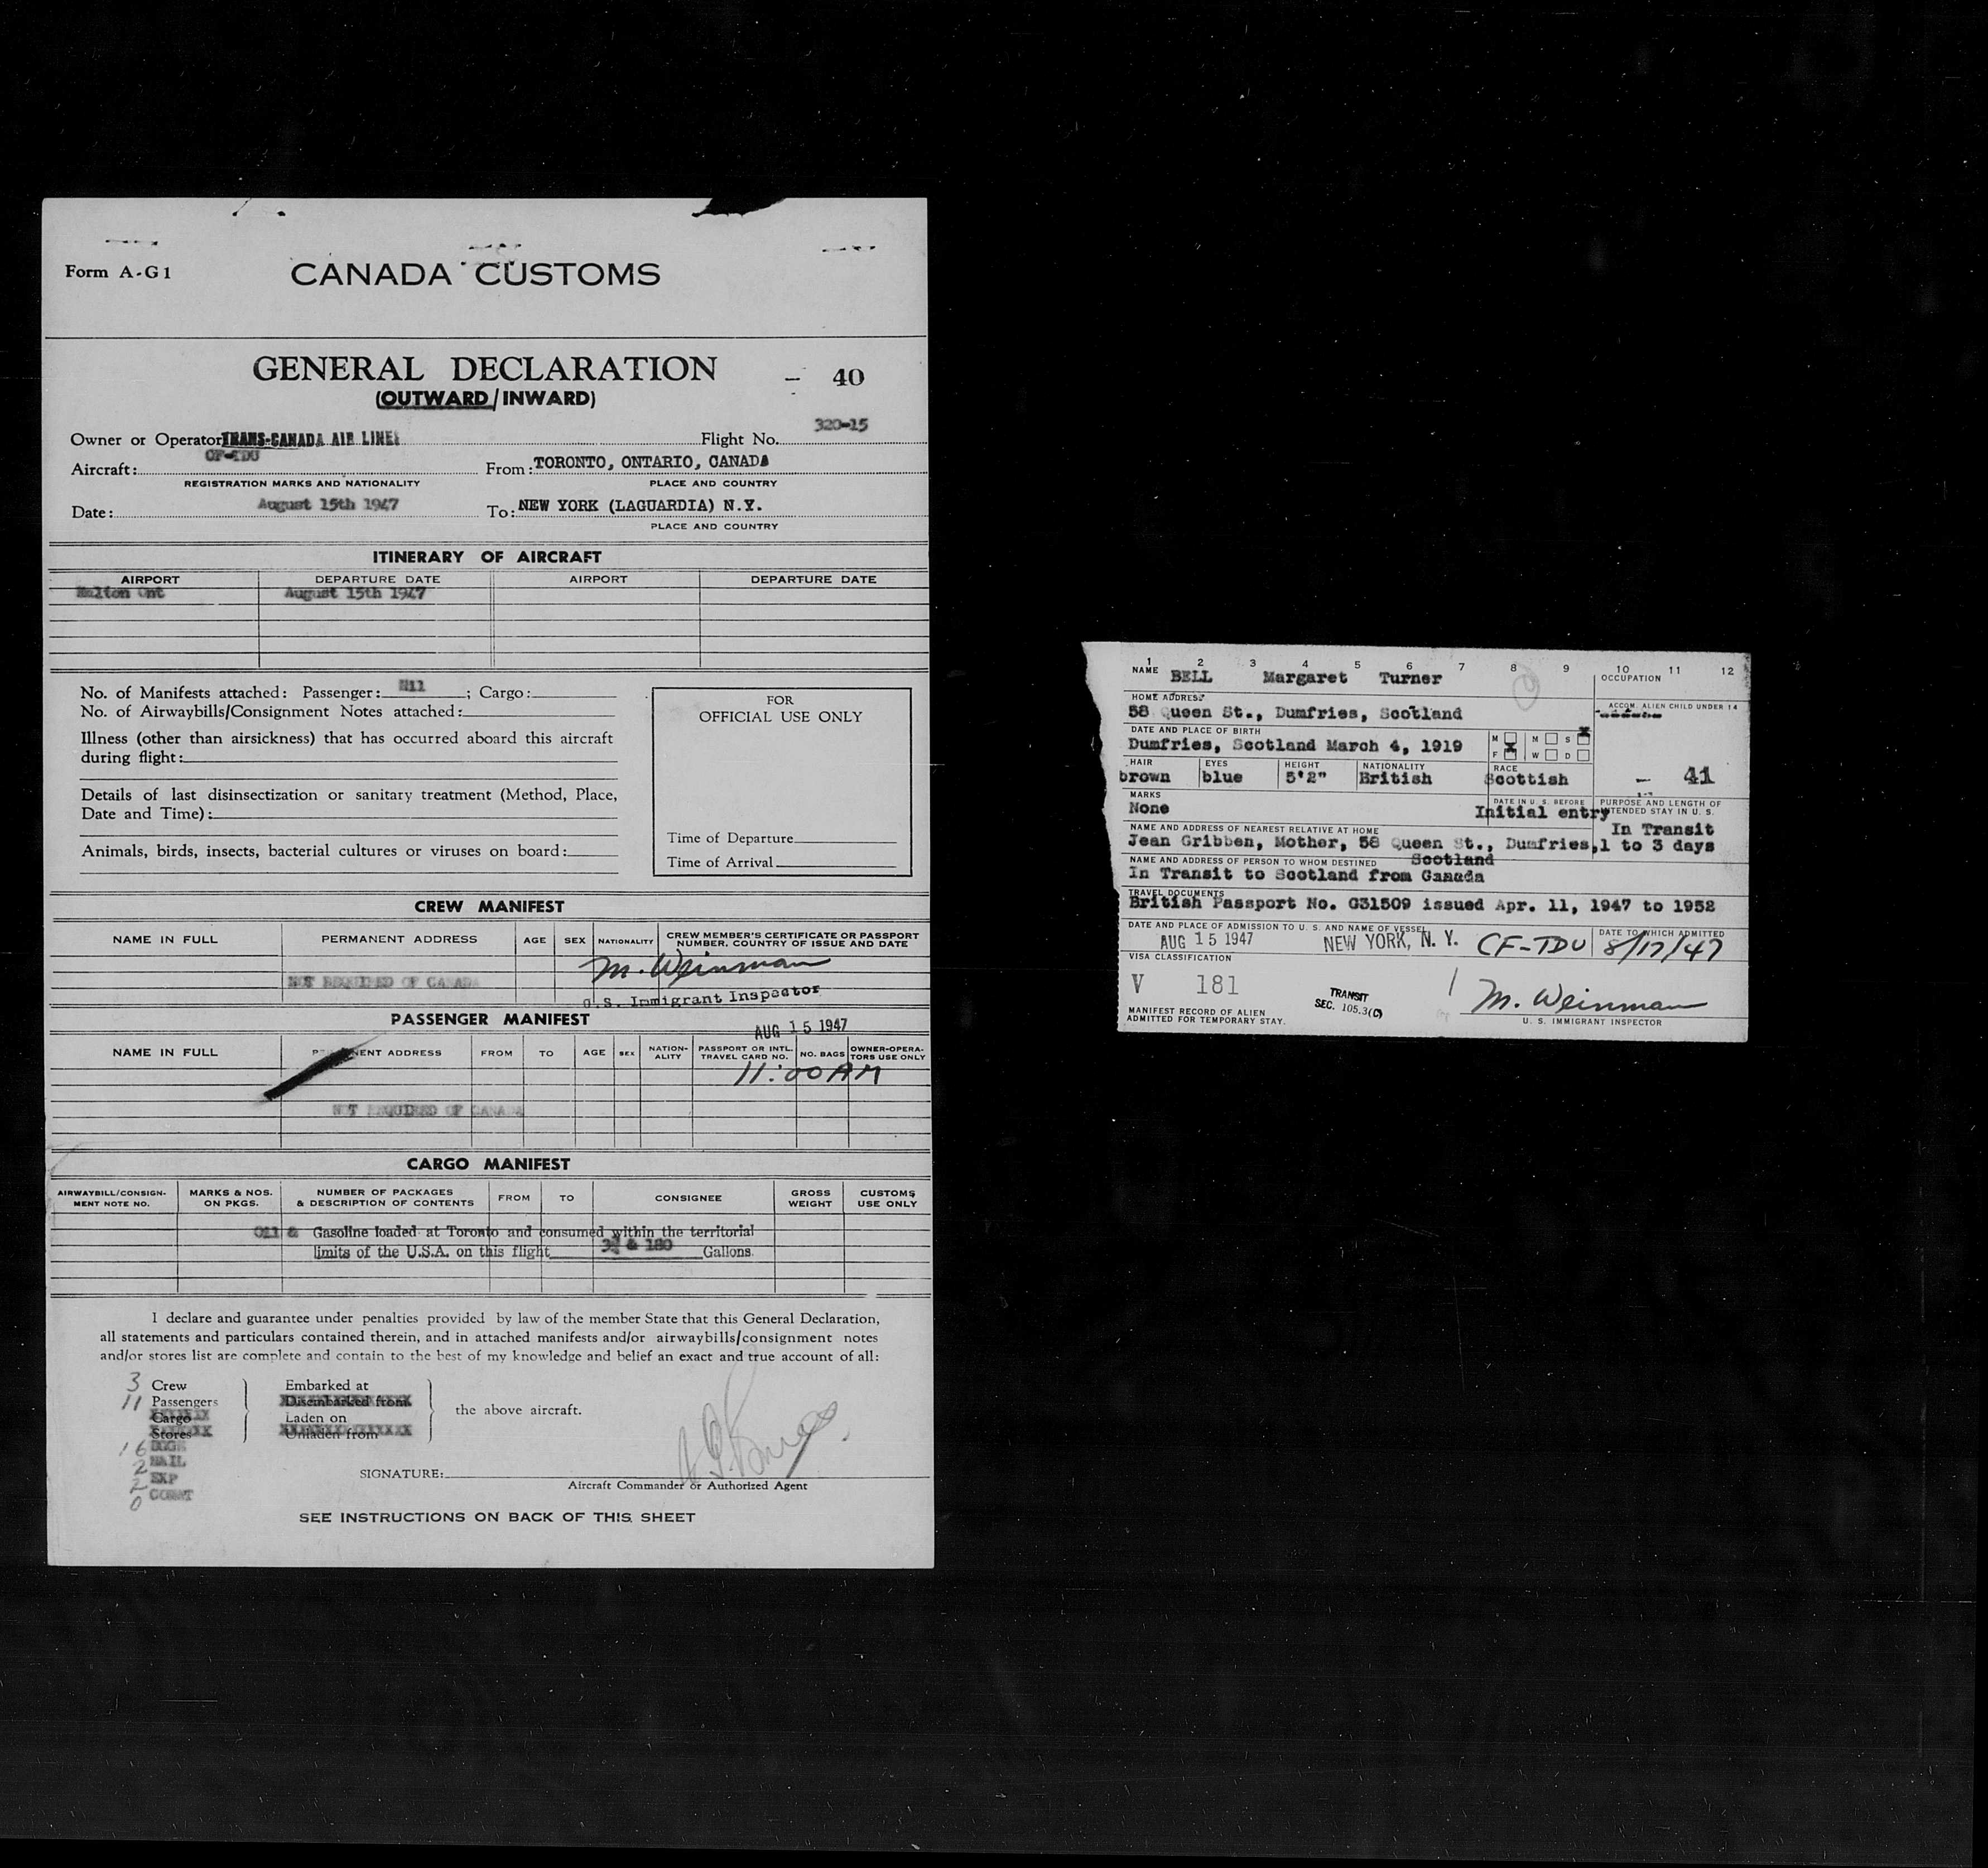 Form A-G1
CANADA CUSTOMS
GENERAL DECLARATION
- 40
(OUTWARD/INWARD)
320-15
Owner or Operator TRANS-CANADA AIR LINES Flight No.
CF-TDU
Aircraft: From: TORONTO, ONTARIO, CANADA
REGISTRATION MARKS AND NATIONALITY PLACE AND COUNTRY
Date: August 15th 1947 To: NEW YORK (LAGUARDIA) N.Y.
PLACE AND COUNTRY
ITINERARY OF AIRCRAFT
AIRPORT DEPARTURE DATE AIRPORT DEPARTURE DATE
Malton Ont August 15th 1947
No. of Manifests attached: Passenger: Nil ; Cargo:
No. of Airwaybills/Consignment Notes attached:
Illness (other than airsickness) that has occurred aboard this aircraft
during flight:
Details of last disinsectization or sanitary treatment (Method, Place,
Date and Time):
Animals, birds, insects, bacterial cultures or viruses on board:
FOR
OFFICIAL USE ONLY
Time of Departure
Time of Arrival
CREW MANIFEST
NAME IN FULL PERMANENT ADDRESS AGE SEX NATIONALITY CREW MEMBER'S CERTIFICATE OR PASSPORT
NUMBER, COUNTRY OF ISSUE AND DATE
M. Weinman
NOT REQUIRED OF CANADA
U.S. Immigrant Inspector
PASSENGER MANIFEST
AUG 15 1947
NAME IN FULL PERMANENT ADDRESS FROM TO AGE SEX NATION-
ALITY PASSPORT OR INTL.
TRAVEL CARD NO. NO. BAGS OWNER-OPERA-
TORS USE ONLY
11:00 AM
NOT REQUIRED OF CANADA
CARGO MANIFEST
AIRWAYBILL/CONSIGN-
MENT NOTE NO. MARKS & NOS.
ON PKGS. NUMBER OF PACKAGES
& DESCRIPTION OF CONTENTS FROM TO CONSIGNEE GROSS
WEIGHT CUSTOMS
USE ONLY
Oil & Gasoline loaded at Toronto and consumed within the territorial
limits of the U.S.A. on this flight & 180 Gallons.
I declare and guarantee under penalties provided by law of the member State that this General Declaration,
all statements and particulars contained therein, and in attached manifests and/or airwaybills/consignment notes
and/or stores list are complete and contain to the best of my knowledge and belief an exact and true account of all:
3 Crew Embarked at
11 Passengers Disembarked from the above aircraft.
Cargo Laden on
Stores Unladen from
16 BGGE
2 MAIL
2 EXP
0 COMAT
SIGNATURE:
Aircraft Commander or Authorized Agent
SEE INSTRUCTIONS ON BACK OF THIS SHEET
1 2 3 4 5 6 7 8 9 10 11 12
NAME BELL Margaret Turner OCCUPATION
HOME ADDRESS ACCOM. ALIEN CHILD UNDER 14
58 Queen St., Dumfries, Scotland
DATE AND PLACE OF BIRTH M X M S X
Dumfries, Scotland March 4, 1919 F W D
HAIR EYES HEIGHT NATIONALITY RACE
brown blue 5'2" British Scottish - 41
MARKS DATE IN U. S. BEFORE PURPOSE AND LENGTH OF
None Initial entry INTENDED STAY IN U. S.
NAME AND ADDRESS OF NEAREST RELATIVE AT HOME In Transit
Jean Gribben, Mother, 58 Queen St., Dumfries, 1 to 3 days
NAME AND ADDRESS OF PERSON TO WHOM DESTINED Scotland
In Transit to Scotland from Canada
TRAVEL DOCUMENTS
British Passport No. G31509 issued Apr. 11, 1947 to 1952
DATE AND PLACE OF ADMISSION TO U. S. AND NAME OF VESSEL DATE TO WHICH ADMITTED
AUG 15 1947 NEW YORK, N. Y. CF-TDU 8/17/47
VISA CLASSIFICATION
V 181 TRANSIT
SEC. 105.3(C) M. Weinman
MANIFEST RECORD OF ALIEN
ADMITTED FOR TEMPORARY STAY. U. S. IMMIGRANT INSPECTOR